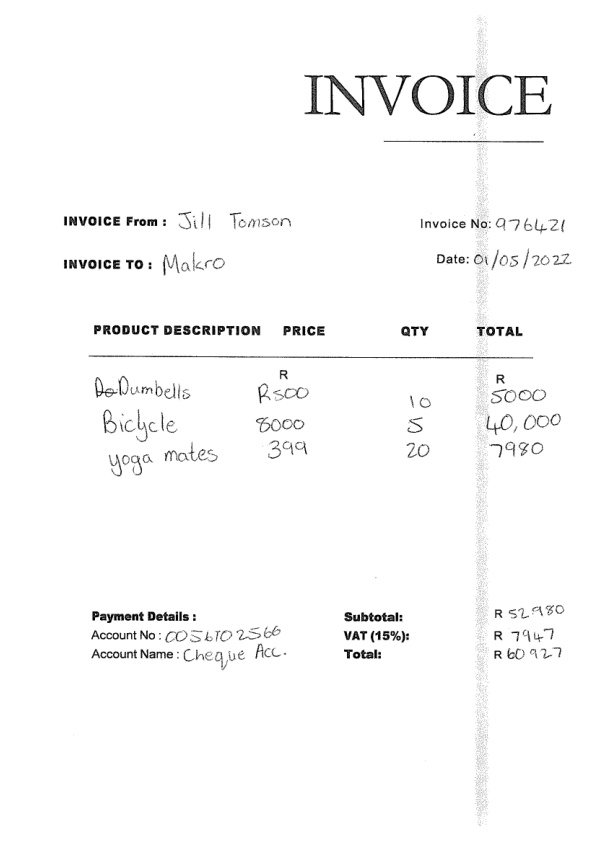 INVOICE
INVOICE From : Jill Tomson
Invoice No: 976421
INVOICE TO : Makro
Date: 01/05/2022
PRODUCT DESCRIPTION PRICE QTY TOTAL
R R
Dumbells R500 10 5000
Bicycle 8000 5 40,000
yoga mates 399 20 7980
Payment Details :
Subtotal: R 52980
Account No :
VAT (15%): R 7947
Account Name : Cheque Acc.
Total: R 60927